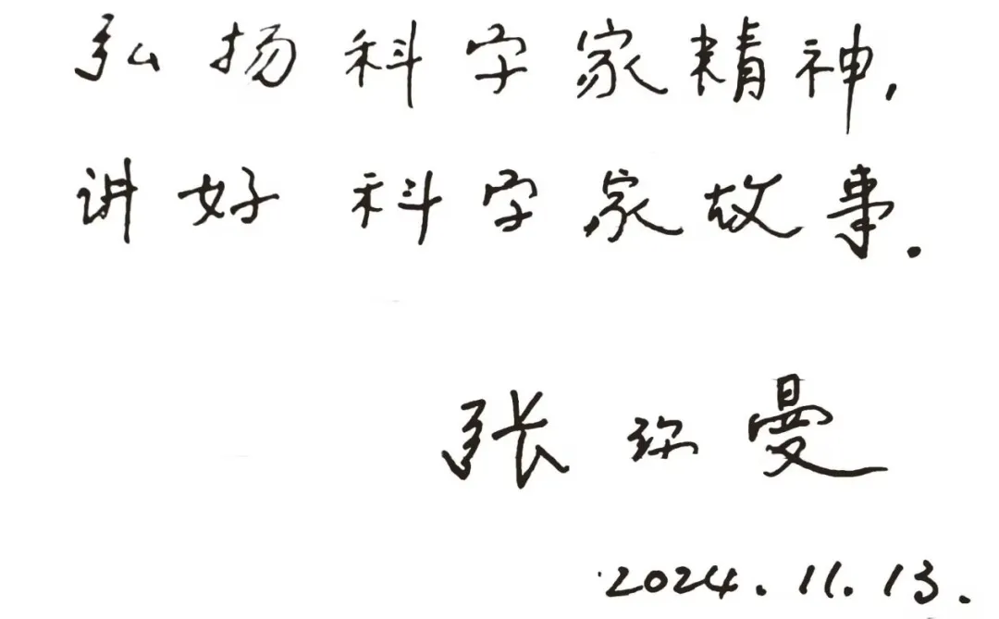 弘扬科学家精神,
讲好科学家故事.
张弥曼
2024.11.13.